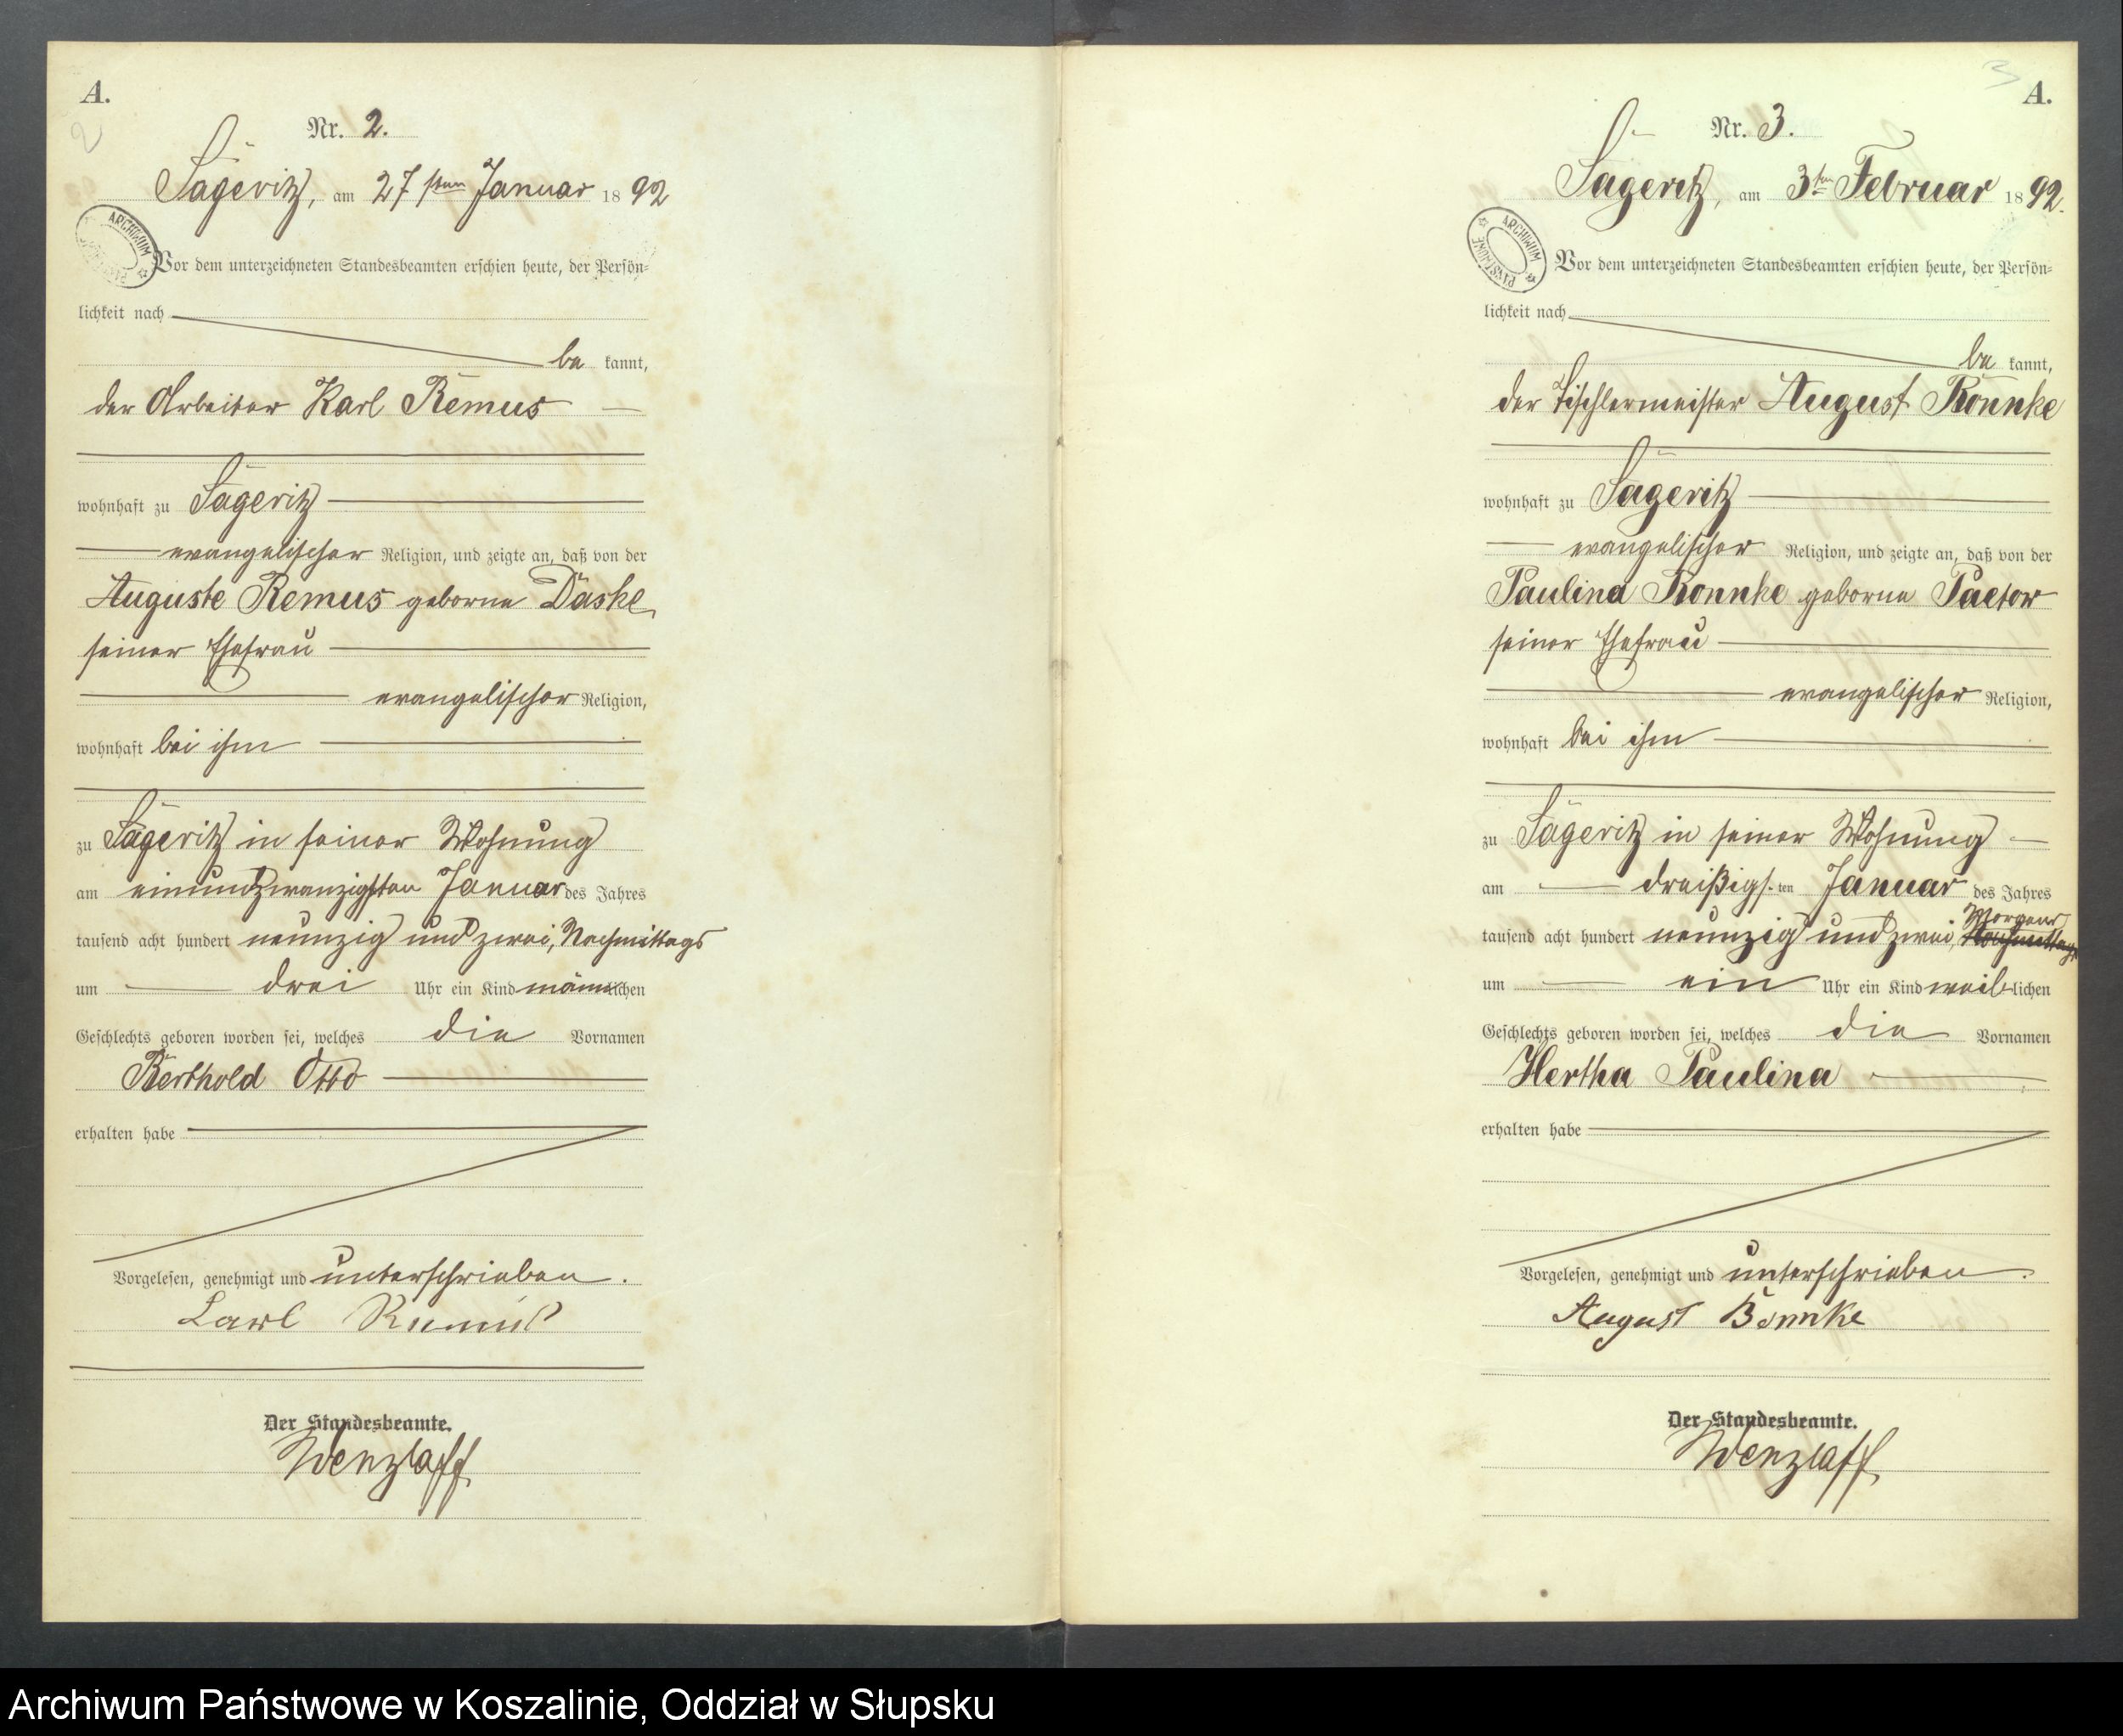 A.
2
Nr. 2.
Sageritz, am 27sten Januar 1892
ARCHIWUM
Vor dem unterzeichneten Standesbeamten erschien heute, der Persön=
lichkeit nach
be kannt,
der Arbeiter Karl Remus
wohnhaft zu Sageritz
evangelischer Religion, und zeigte an, daß von der
Auguste Remus geborne Daske,
seiner Ehefrau
evangelischer Religion,
wohnhaft bei ihm
zu Sageritz in seiner Wohnung
am einundzwanzigsten Januar des Jahres
tausend acht hundert neunzig und zwei, Nachmittags
um drei Uhr ein Kind männlichen
Geschlechts geboren worden sei, welches die Vornamen
Berthold Otto
erhalten habe
Vorgelesen, genehmigt und unterschrieben.
Carl Remus
Der Standesbeamte.
Wenzlaff
3
A.
Nr. 3.
Sageritz, am 3ten Februar 1892.
ARCHIWUM
Vor dem unterzeichneten Standesbeamten erschien heute, der Persön=
lichkeit nach
be kannt,
der Tischlermeister August Bönnke
wohnhaft zu Sageritz
evangelischer Religion, und zeigte an, daß von der
Paulina Bonnke geborne Paetow
seiner Ehefrau
evangelischer Religion,
wohnhaft bei ihm
zu Sageritz in seiner Wohnung
am dreißigsten Januar des Jahres
Morgens
tausend acht hundert neunzig und zwei, Nachmittags
um ein Uhr ein Kind weiblichen
Geschlechts geboren worden sei, welches die Vornamen
Hertha Paulina
erhalten habe
Vorgelesen, genehmigt und unterschrieben.
August Bönnke
Der Standesbeamte.
Wenzlaff
Archiwum Państwowe w Koszalinie, Oddział w Słupsku